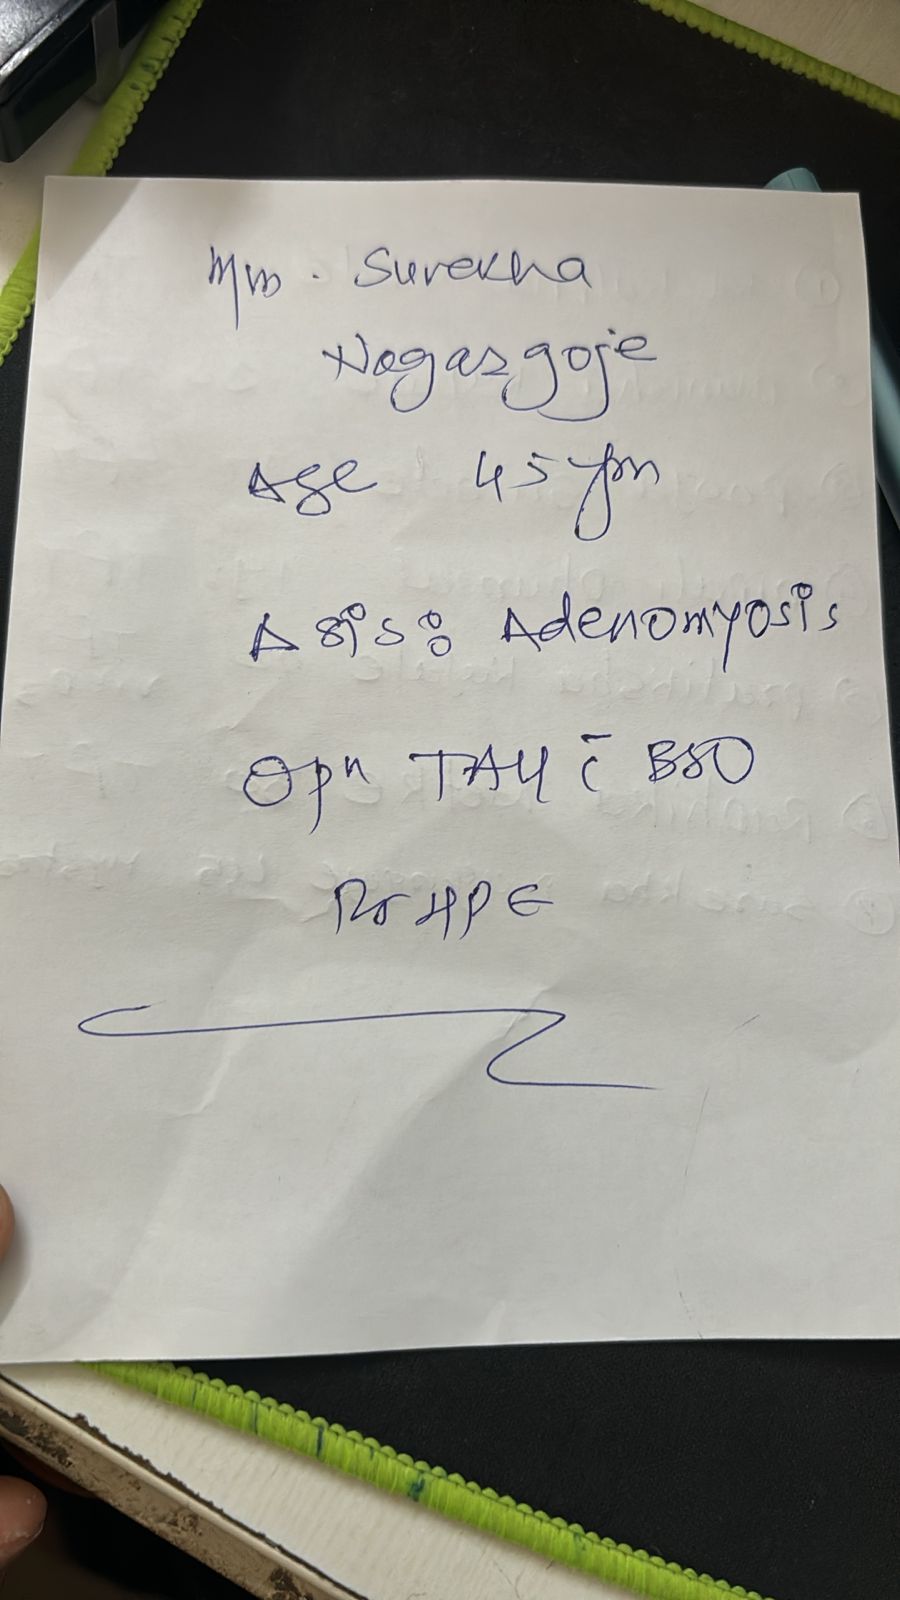 Mrs. Surekha
Nagargoje
Age 45 yrs
Δsis: Adenomyosis
Opn TAH c̄ BSO
for HPE